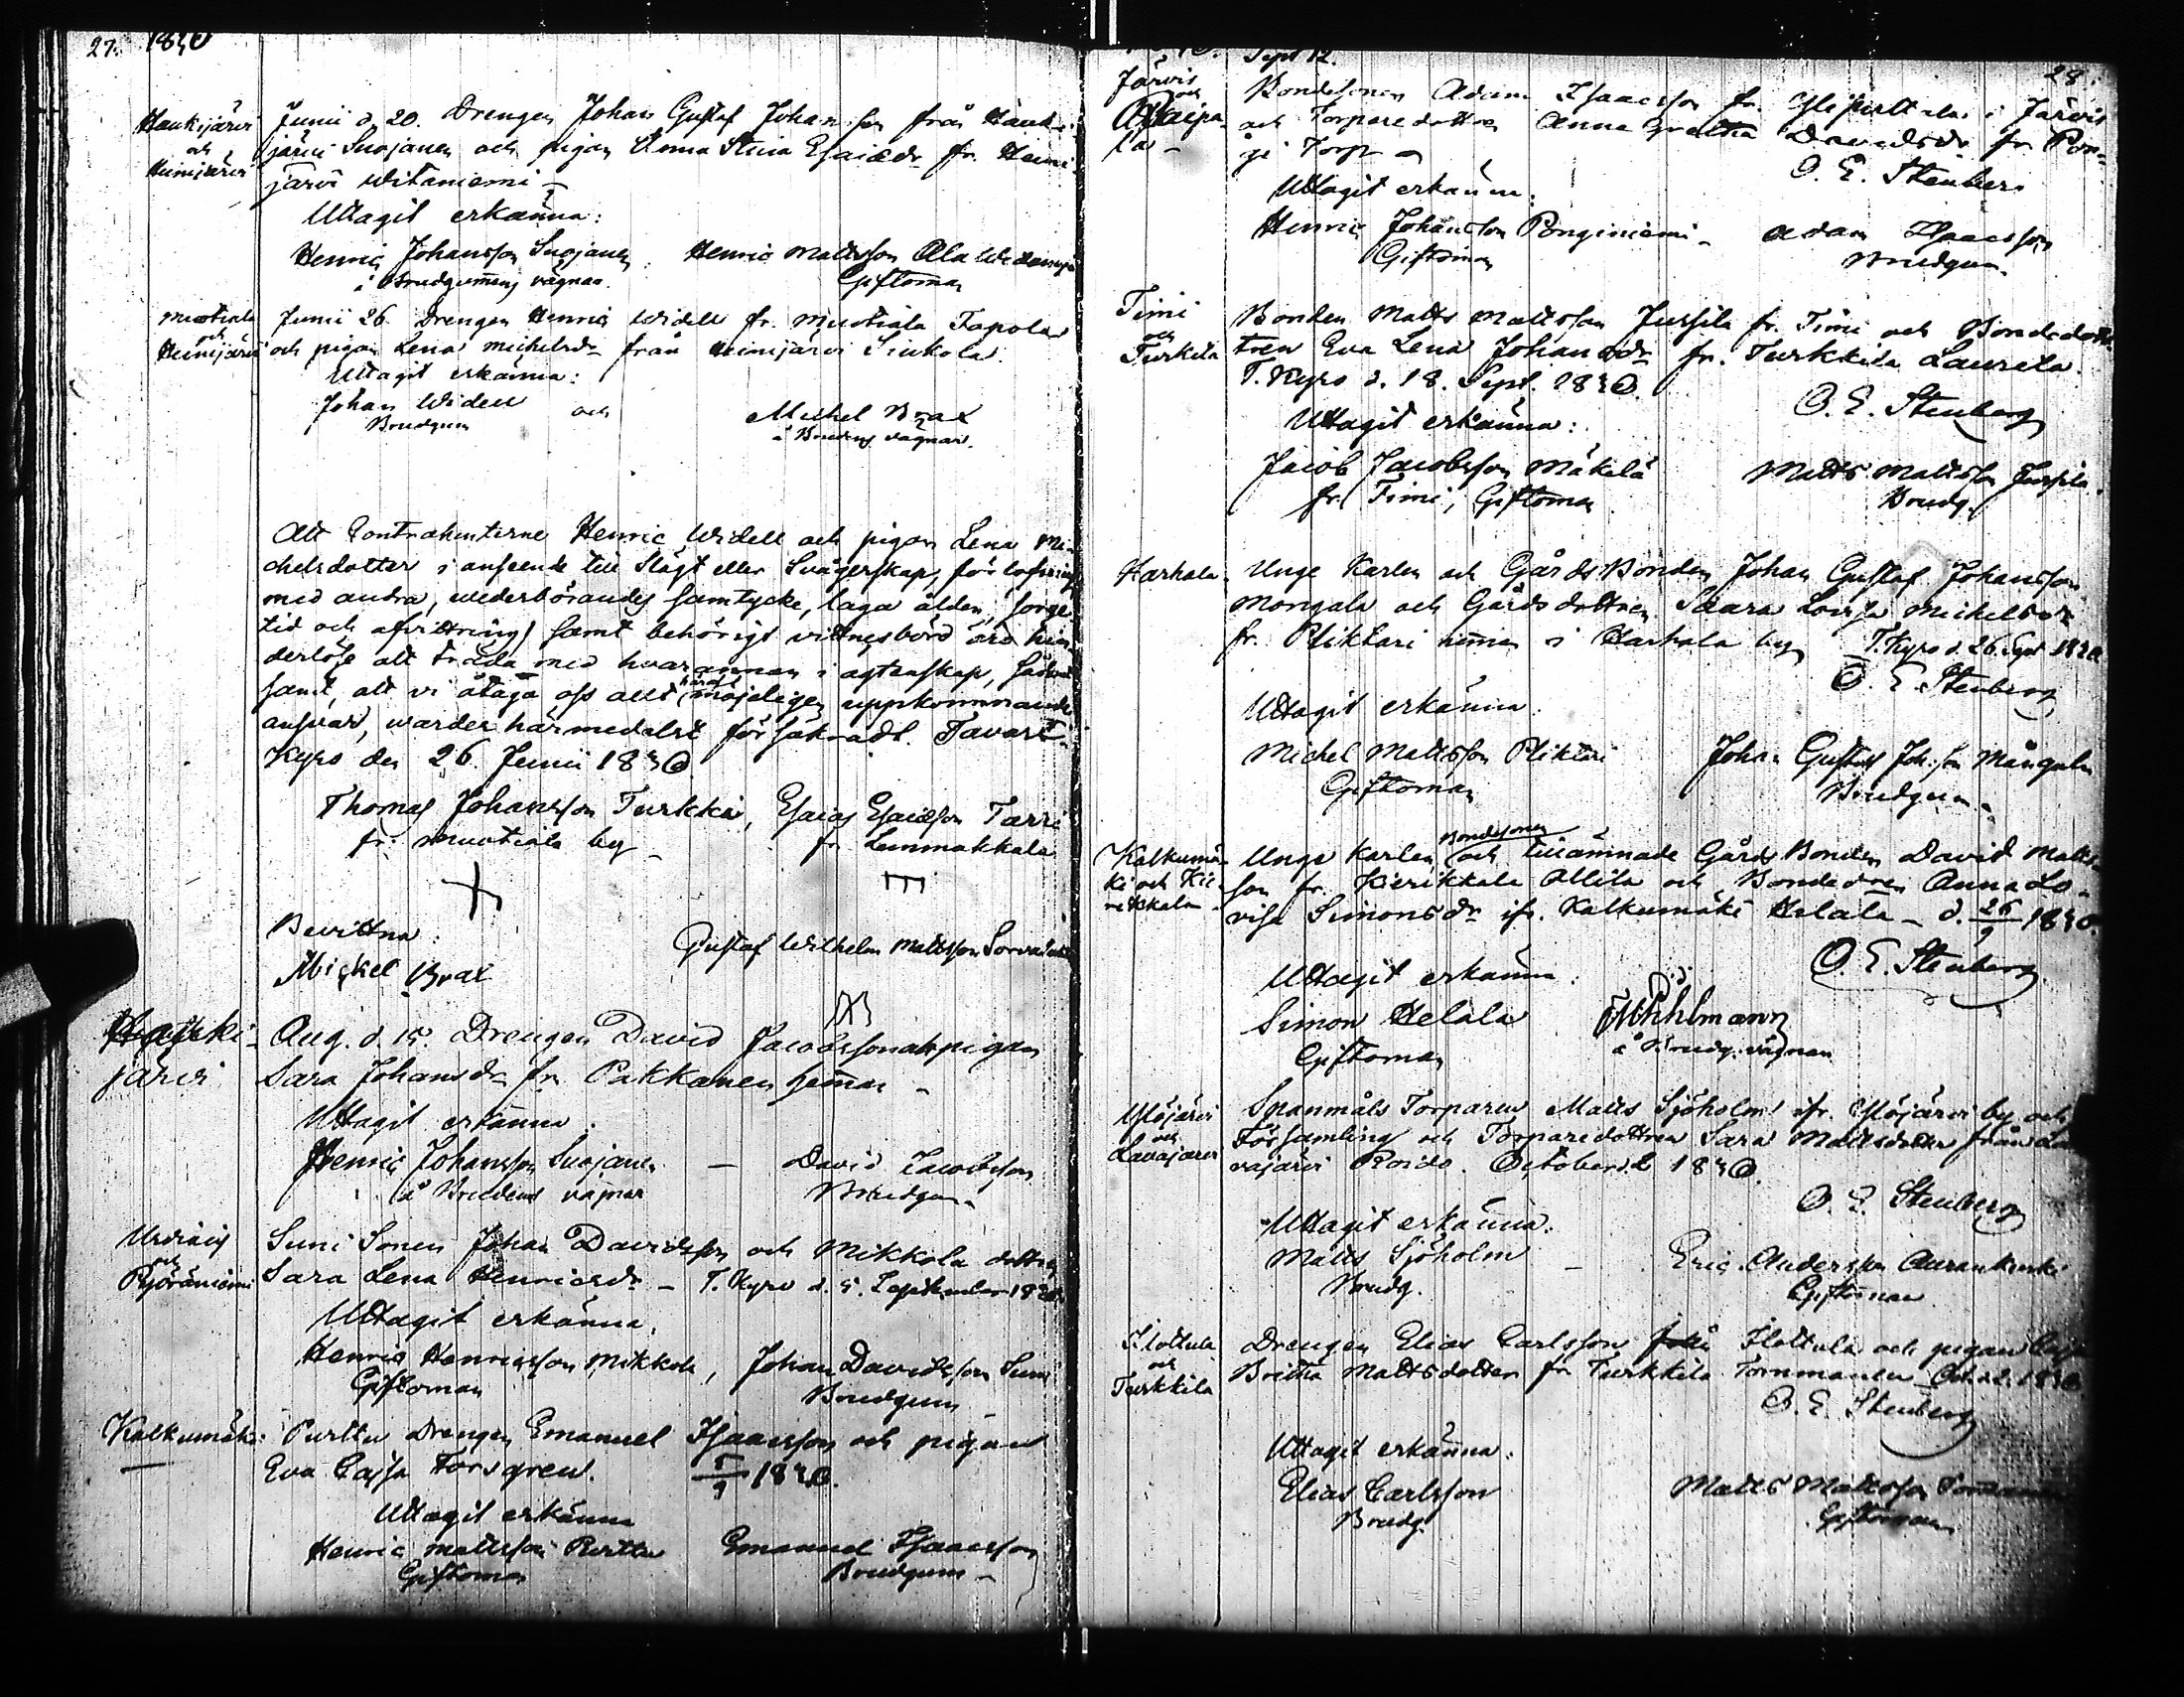 27. 1840
Haukijärvi
och
Heinijärvi
Junii d. 20. Drengen Johan Gustaf Johansson från Hauki-
järvi Suojanen och pigan Anna Stina Esaiædr fr. Heini-
järvi Witaniemi
Uttagit erkänna:
Henric Johansson Suojanen Henric Mattsson Ala
å Brudgummens vägnar. Giftoman
Muotiala
och
Heinijärvi
Junii 26. Drengen Henric Widell fr. Muotiala Tapola
och pigan Lena Michelsdr från Heinijärvi Siukola.
Uttagit erkänna:
Johan Widell och Michel Brax
Brudgum å Brudens vägnar.
Att Contrahenterne Henric Widell och pigan Lena Mi-
chelsdotter i anseende till Slägt eller Svågerskap, förlofning
med andra, wederbörandes samtycke, laga ålder, sorge-
tid och afvittring samt behörigt vittnesbörd äro hin-
derlöse att träda med hvarannan i ägtenskap,
samt, att vi åtaga oss allt häraf möjeligen uppkommande
ansvar, warder härmedelst försäkradt. Tavast-
Kyro den 26. Junii 1840
Thomas Johansson Turkki, Esaias Esaiæson Tarri
fr. Muotiala by fr. Lemmakkala
Bevittna:
Michel Brax Gustaf Wilhelm Mattsson
Hauki-
järvi
Aug. d. 15. Drengen David Jacobsson och pigan
Sara Johansdr fr. Pakkanen hemman
Uttagit erkänna:
Henric Johansson Suojanen — David Jacobsson
å Brudens vägnar Brudgum
och
Pyöräniemi
Suni Sonen Johan Davidsson och Mikkola dottren
Sara Lena Henricsdr — T. Kyro d. 5. September 1840.
Uttagit erkänna,
Henric Henricsson Mikkola, Johan Davidsson Suni
Giftoman Brudgum
Kalkumäki
Purttu Drengen Emanuel Isaacsson och pigan
Eva Cajsa Forsgren. 5/9 1840.
Uttagit erkänna
Henric Mattsson Purttu Emanuel Isaacsson
Giftoman Brudgum
Sept 12. 28.
Järvis
och
Bondesonen Adam Isaacsson fr. i Järvis
och Torparedottren Anna Gretha Davidsdr fr. Pon-
gi Torp
O. E. Stenberg
Uttagit erkänna:
Henric Johansson Ponginiemi — Adam Isaacsson
Giftoman Brudgum.
Timi
och
Turkila
Bonden Matts Mattsson Jussila fr. Timi och Bondedott-
tren Eva Lena Johansdr fr. Turkkila Laurila.
T. Kyro d. 18. Sept. 1840.
O. E. Stenberg
Uttagit erkänna:
Jacob Jacobsson Mäkelä Matts Mattsson Jussila
fr. Timi, Giftoman Brudg.
Karhala
Unge Karlen och GårdsBonden Johan Gustaf Johansson
Mongala och Gårdsdottren Saara Lovisa Michelsdr
fr. Pliktari hemman i Karhala by T. Kyro d. 26. Sept 1840
O. E. Stenberg
Uttagit erkänna:
Michel Mattsson Pliktari Johan Gustaf Joh:son Mångala
Giftoman Brudgum
Kalkumä-
ki och Kie-
rikkala
Bondesonen
Unge Karlen och tillämnade GårdsBonden David Matts-
son fr. Kierikkala Ollila och Bondedren Anna Lo-
visa Simonsdr ifr. Kalkumäki Helala — d. 26/9 1840.
O. E. Stenberg
Uttagit erkänna:
Simon Helala
Giftoman å Brudg. vägnar
Ylöjärvi
och
Lavajärvi
Spanmåls Torparen Matts Sjöholm ifr. Ylöjärvi by och
Församling och Torparedottren Sara Mattsdotter från La-
vajärvi Roido. October d. 2 1840.
O. E. Stenberg
Uttagit erkänna.
Matts Sjöholm — Eric Andersson
Brudg. Giftoman
och
Turkkila
Drengen Elias Carlsson och pigan Cajsa
Britha Mattsdotter fr Turkkila Tornmanen 1840
O. E. Stenberg
Uttagit erkänna:
Elias Carlsson Matts Mattsson
Brudg. Giftoman